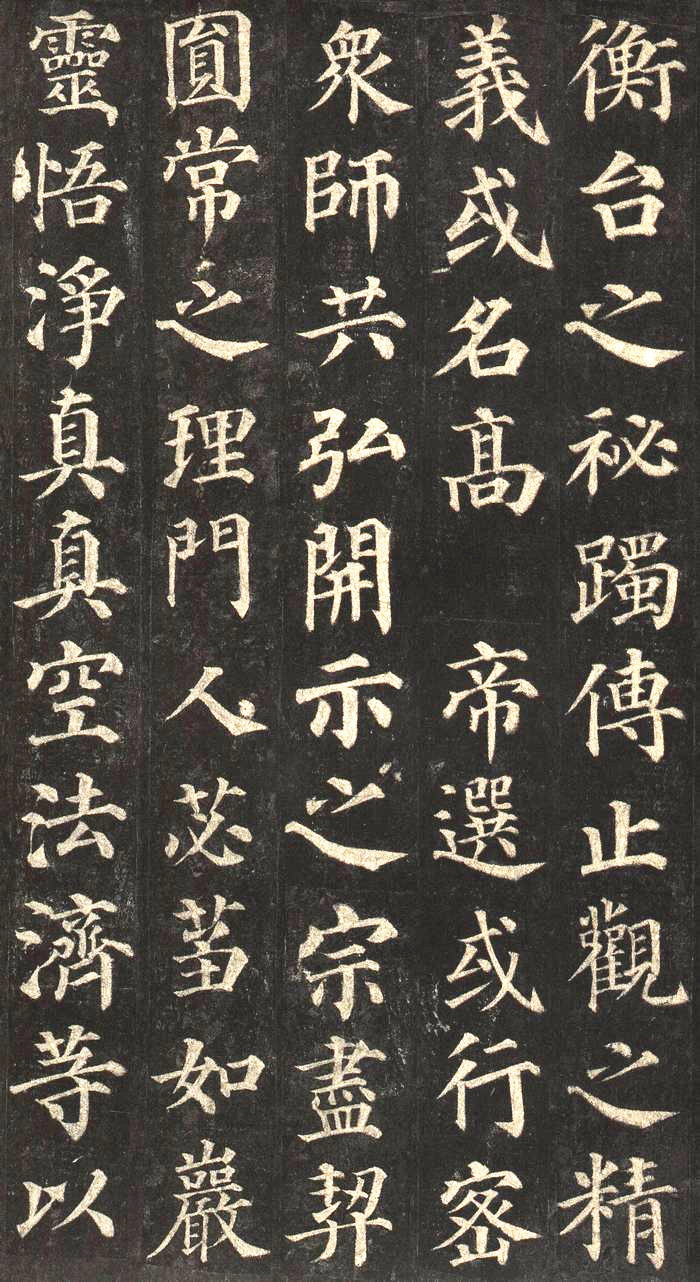 衡台之祕躅傳止觀之精
義或名高 帝選或行密
衆師共弘開示之宗盡契
圓常之理門人苾蒭如巖
靈悟淨真真空法濟等以